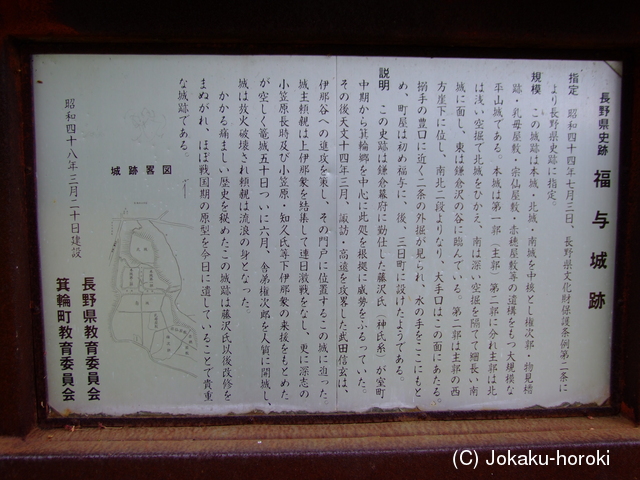 長野県史跡 福与城跡
指定 昭和四十四年七月三日、長野県文化財保護条例第二条に
より長野県史跡に指定。
規模 この城跡は本城・北城・南城を中核とし権次郎・物見櫓
跡・乳母屋敷・宗仙屋敷・赤穂屋敷等の遺構をもつ大規模な
平山城である。本城は第一郭(主郭)第二郭に分れ主郭は北
は浅い空掘で北城をひかえ、南は深い空掘を隔てて細長い南
城に面し、東は鎌倉沢の谷に臨んでいる。第二郭は主郭の西
方崖下に位し、南北二段よりなり、大手口はこの面にあたる。
搦手の豊口に近く二条の外掘が見られ、水の手をここにもと
め、町屋は初め福与に、後、三日町に設けたようである。
説明 この史跡は鎌倉幕府に勤仕した藤沢氏(神氏系)が室町
中期から箕輪郷を中心に此処を根拠に威勢をふるっていた。
その後天文十四年三月、諏訪・高遠を攻畧した武田信玄は、
伊那谷への進攻を策し、その門戸に位置するこの城に迫った。
城主頼親は上伊那衆を結集して連日激戦をなし、更に深志の
小笠原長時及び小笠原・知久氏等下伊那衆の来援をもとめた
が空しく篭城五十日ついに六月、舎弟権次郎を人質に開城し、
城は放火破壊され頼親は流浪の身となった。
かかる痛ましい歴史を秘めたこの城跡は藤沢氏以後改修を
まぬがれ、ほぼ戦国期の原型を今日に遺していることで貴重
な城跡である。
城跡畧図
昭和四十八年三月二十日建設
長野県教育委員会
箕輪町教育委員会
(C) Jokaku-horoki